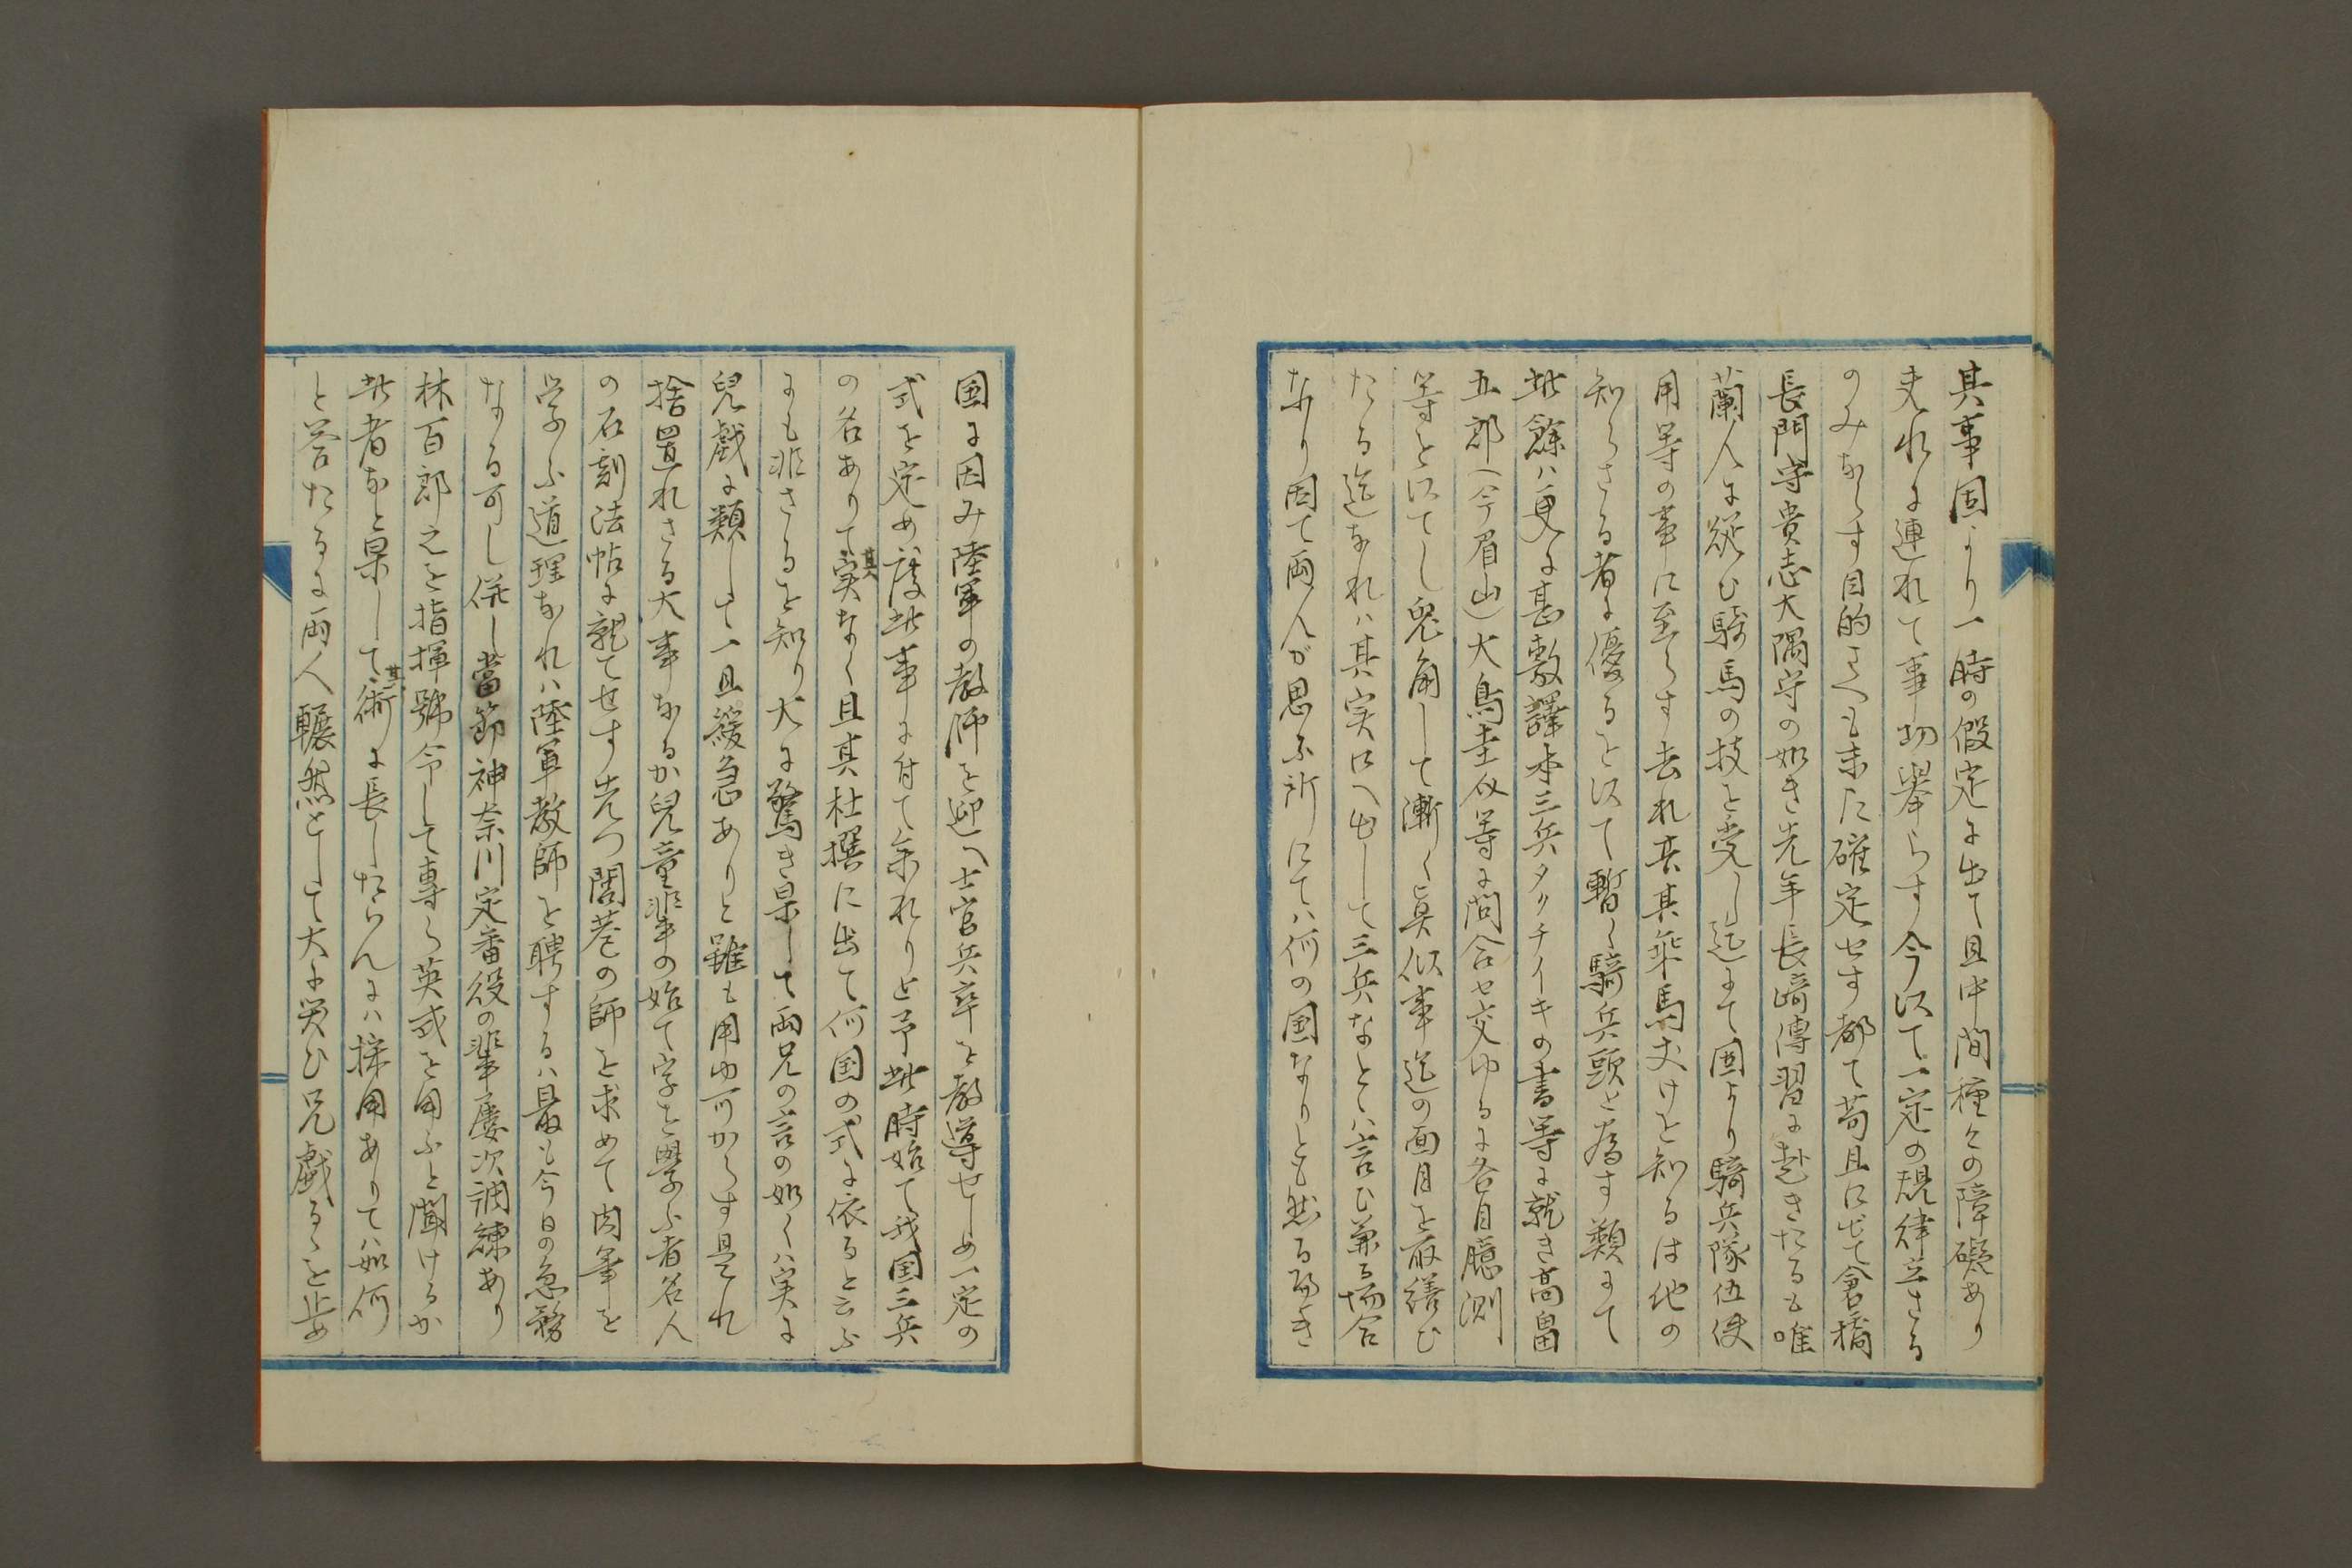 其事固より一時の假定に出て且中間種々の障礙あり
夫れに連れて事功舉らす今以て一定の規律立さる
のみならす目的さへも未た確定せす都て苟且に出て倉橋
長門守貴志大隅守の如き先年長崎傳習に赴きたるも唯
蘭人に従ひ騎馬の技を受し迄にて固より騎兵隊伍使
用等の事に至らす去れ共其乗馬丈けを知るは他の
知らさる者に優るを以て暫く騎兵頭と為す類にて
此餘ハ更に甚敷譯本三兵タクチイキの書等に就き高畠
五郎（今眉山）大鳥圭介等に問合セ交ゆるに各自臆測
等を以てし兎角して漸く眞似事迄の面目を取繕ひ
たる迄なれハ其実地へ出して三兵なとゝハ言ひ兼る場合
なり因て両人が思ふ所にてハ何の国なりとも然る可き
国に因み陸軍の教師を迎へ士官兵卒を教導せしめ一定の
式を定め度此事に付て余れりと予此時始て我国三兵
の名ありて其実なく且其杜撰に出て何国の式に依ると云ふ
にも非さるを知り大に驚き果して両兄の言の如くハ実に
兒戯に類して一旦緩急ありと雖も用ゆ可からす是れ
捨置れさる大事なるか兒童輩の始て字を學ふ者名人
の石刻法帖に就てせす先つ閭巷の師を求めて肉筆を
学ふ道理なれハ陸軍教師を聘するハ最も今日の急務
なる可し併し當節神奈川定番役の輩屡次調練あり
林百郎之を指揮號令して専ら英式を用ふと聞けるか
此者なと果して其術に長したらんにハ採用ありてハ如何
と答たるに両人囅然として大に笑ひ兄戯るゝを止め